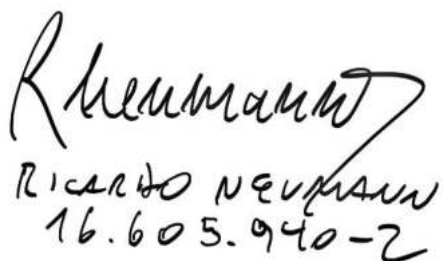 RNeumann
RICARDO NEUMANN
16.605.940-2